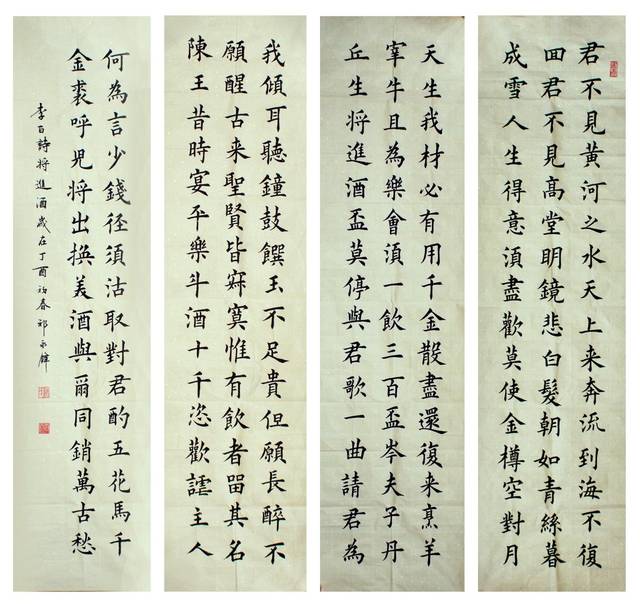 君不見黃河之水天上来奔流到海不復
囬君不見高堂明鏡悲白髮朝如青絲暮
成雪人生得意須盡歡莫使金樽空對月
天生我材必有用千金散盡還復来烹羊
宰牛且為樂會須一飲三百盃岑夫子丹
丘生将進酒盃莫停與君歌一曲請君為
我傾耳聽鐘鼓饌玉不足貴但願長醉不
願醒古来聖賢皆寂寞惟有飲者留其名
陳王昔時宴平樂斗酒十千恣歡謔主人
何為言少錢径須沽取對君酌五花馬千
金裘呼児将出換美酒與爾同銷萬古愁
李白詩将進酒歲在丁酉初春祁永